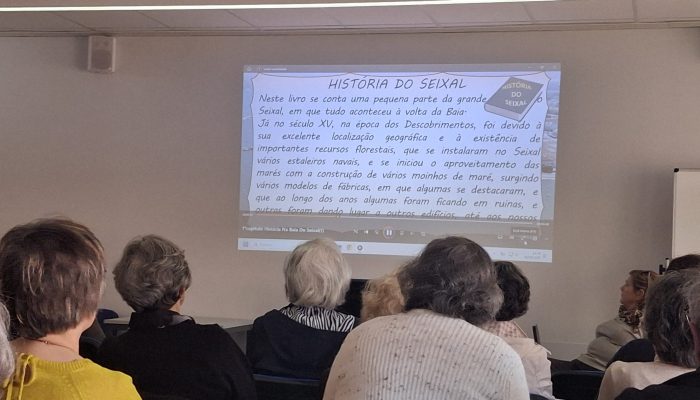 HISTÓRIA DO SEIXAL
HISTÓRIA
DO
SEIXAL
Neste livro se conta uma pequena parte da grande
Seixal, em que tudo aconteceu à volta da Baía.
Já no século XV, na época dos Descobrimentos, foi devido à
sua excelente localização geográfica e à existência de
importantes recursos florestais, que se instalaram no Seixal
vários estaleiros navais, e se iniciou o aproveitamento das
marés com a construção de vários moinhos de maré, surgindo
vários modelos de fábricas, em que algumas se destacaram, e
que ao longo dos anos algumas foram ficando em ruínas, e
outras foram dando lugar a outros edifícios, até aos nossos